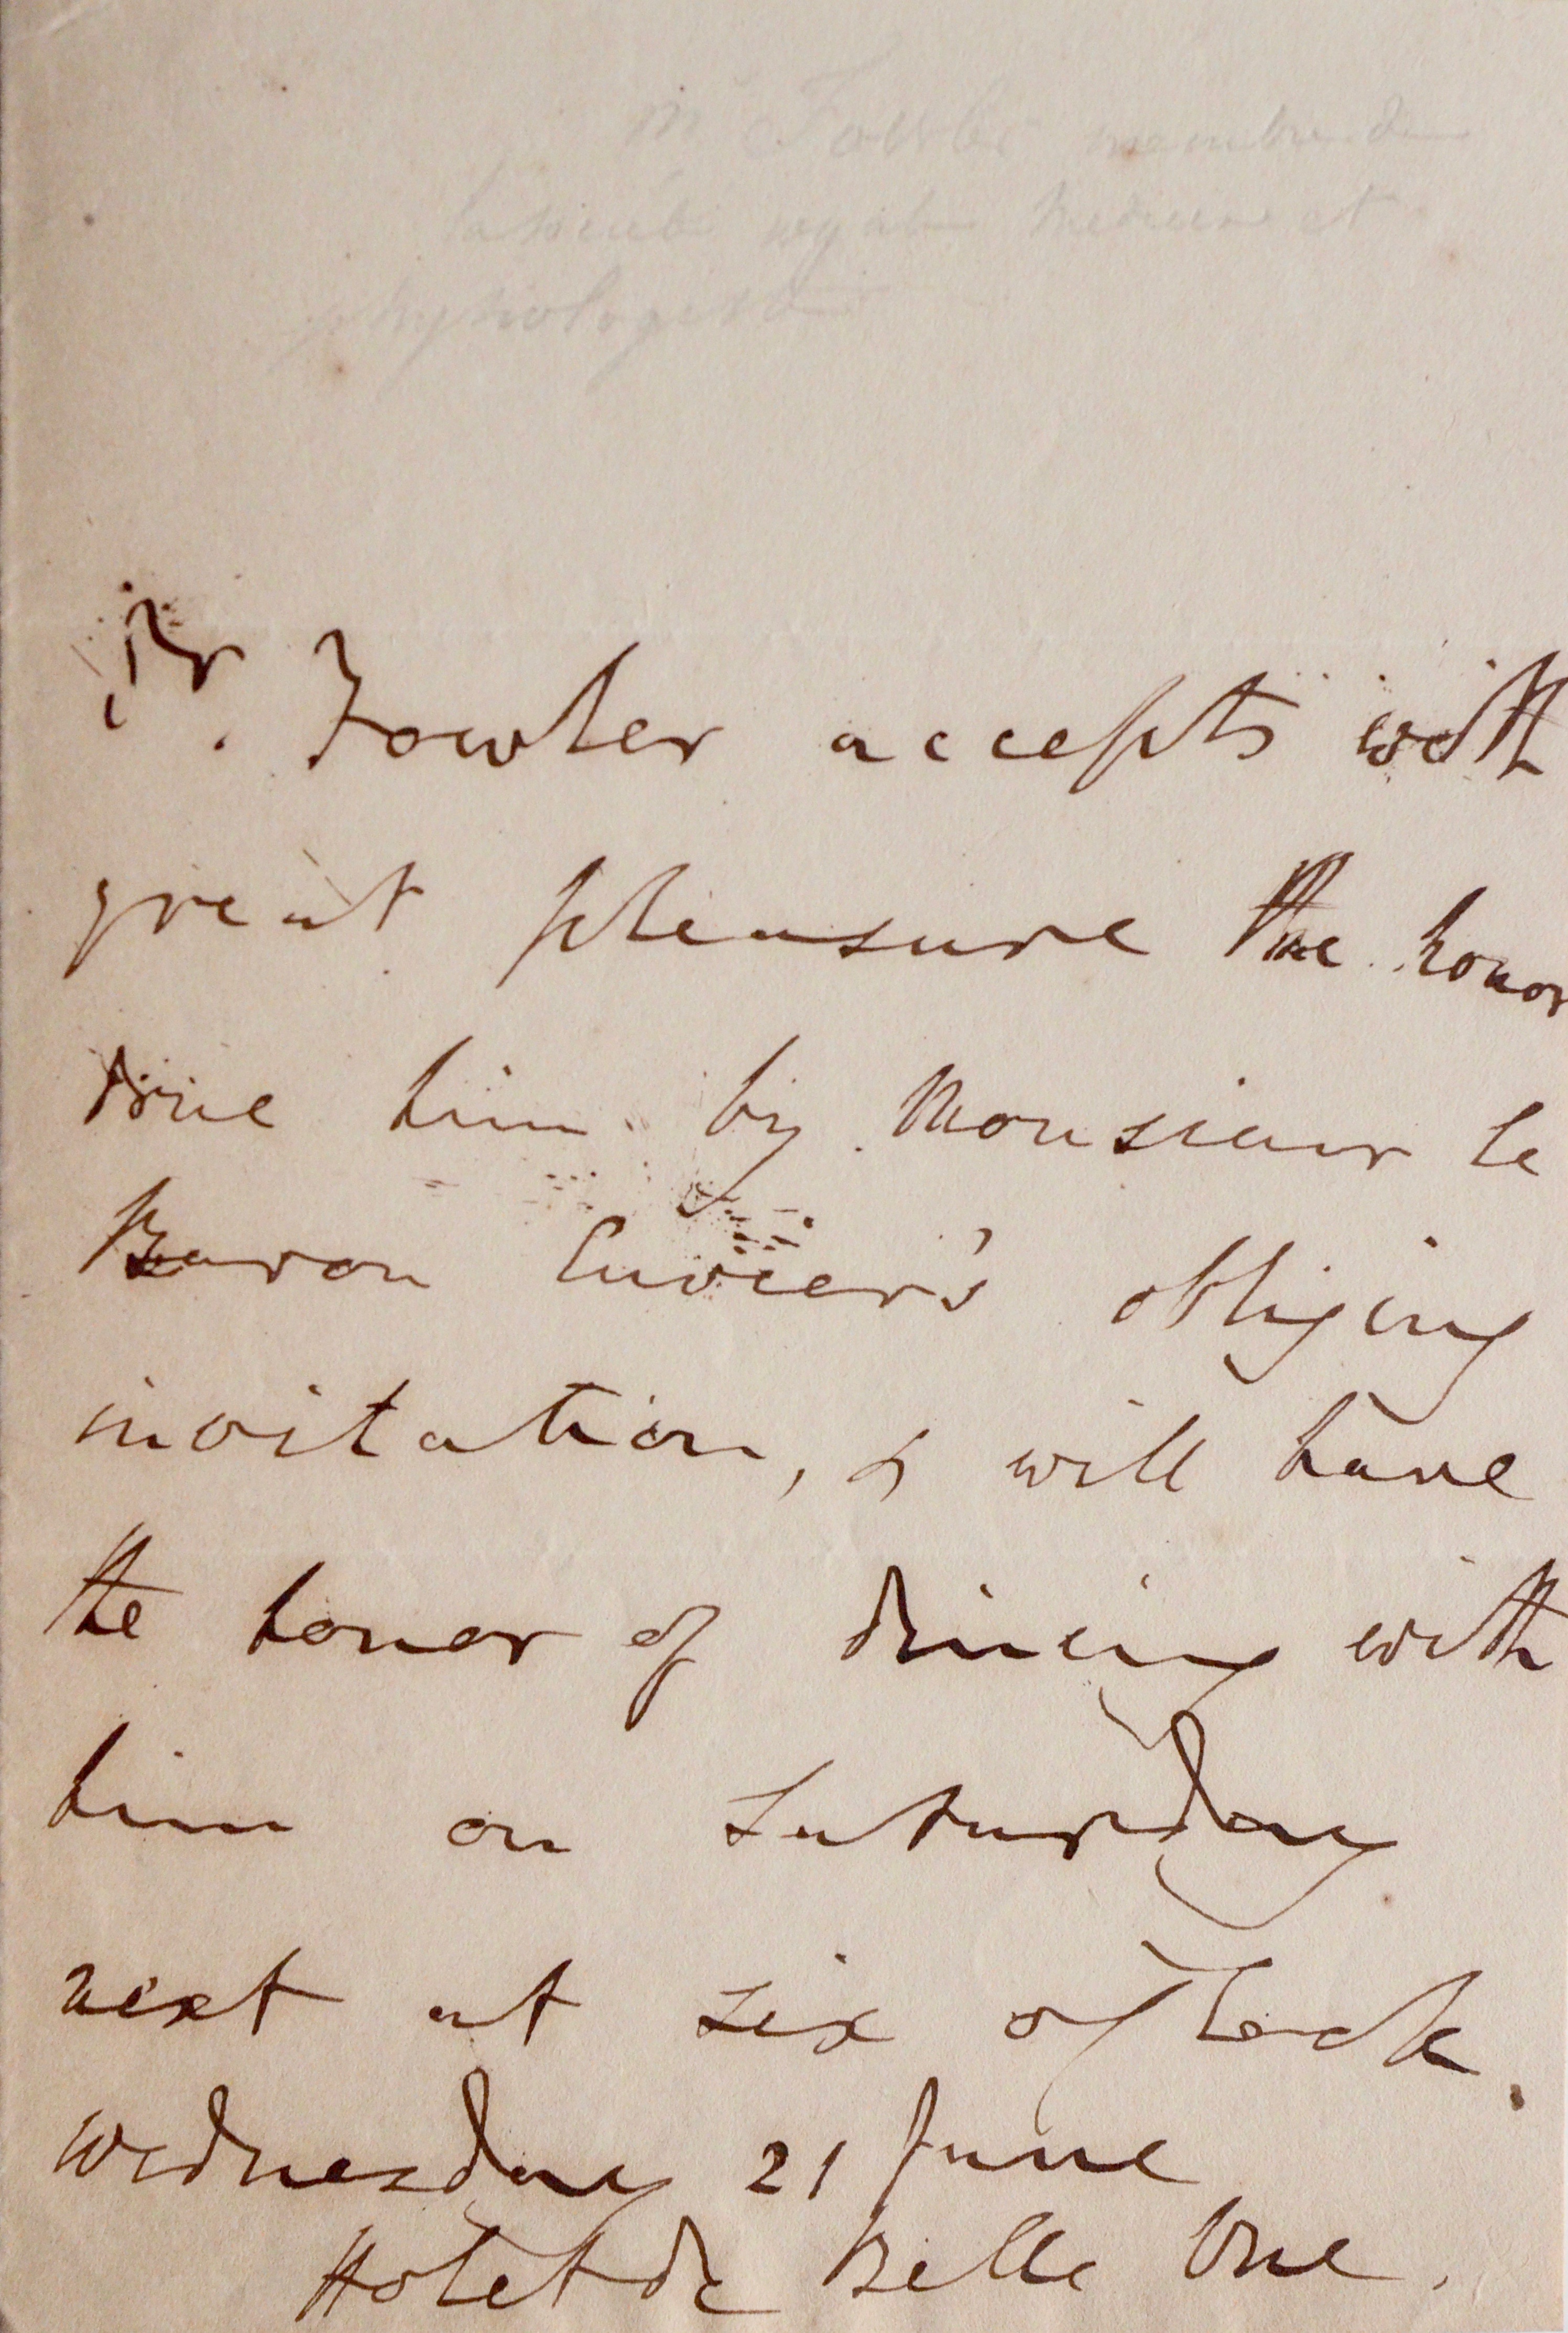 M Fowler membre de
la société royale Medecin et
physiologiste
Dr. Fowler accepts with
great pleasure the honor
done him by Monsieur le
Baron Cuvier's obliging
invitation, & will have
the honor of dining with
him on Saturday
next at six o'Clock.
Wednesday 21 June
Hotel de Belle Vue.